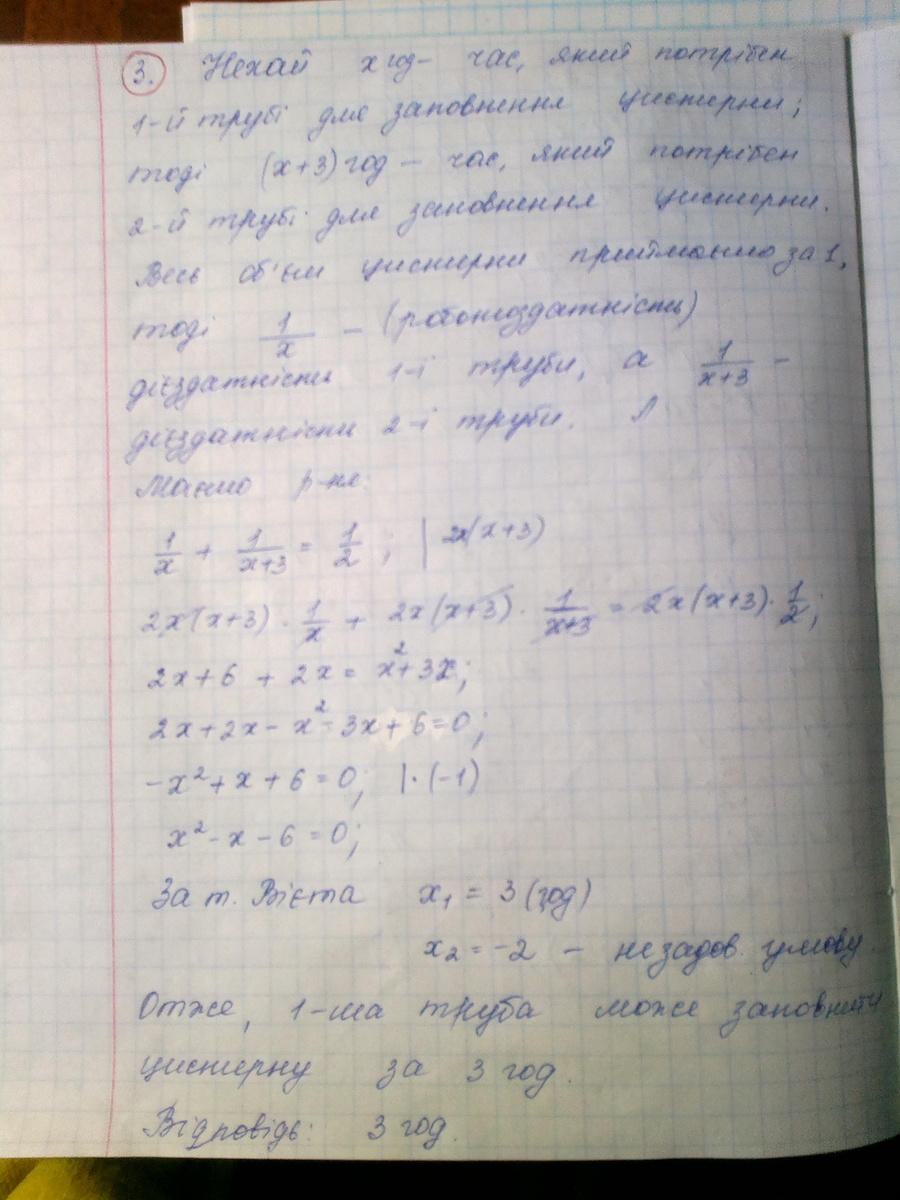 3. Нехай x год - час, який потрібен
1-й трубі для заповнення цистерни;
тоді (x+3) год - час, який потрібен
2-й трубі для заповнення цистерни.
Весь об'єм цистерни приймаємо за 1,
тоді 1/x - (робоноздатність)
дієздатність 1-ї труби, а 1/(x+3) -
дієздатність 2-ї труби.
Маємо р-ня:
1/x + 1/(x+3) = 1/2; | 2x(x+3)
2x(x+3) · 1/x + 2x(x+3) · 1/(x+3) = 2x(x+3) · 1/2;
2x+6 + 2x = x²+3x;
2x+2x-x²-3x+6=0;
-x²+x+6=0; |·(-1)
x²-x-6=0;
За т. Вієта x₁ = 3 (год)
x₂ = -2 - незадов. умову.
Отже, 1-ша труба може заповнити
цистерну за 3 год.
Відповідь: 3 год.